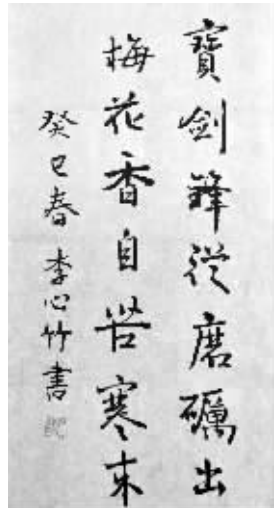 寶劍鋒從磨礪出
梅花香自苦寒来
癸巳春 李心竹書